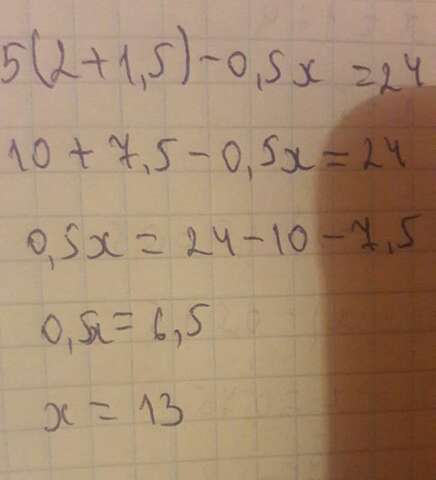 5(2+1,5)-0,5x=24
10+7,5-0,5x=24
0,5x=24-10-7,5
0,5x=6,5
x=13